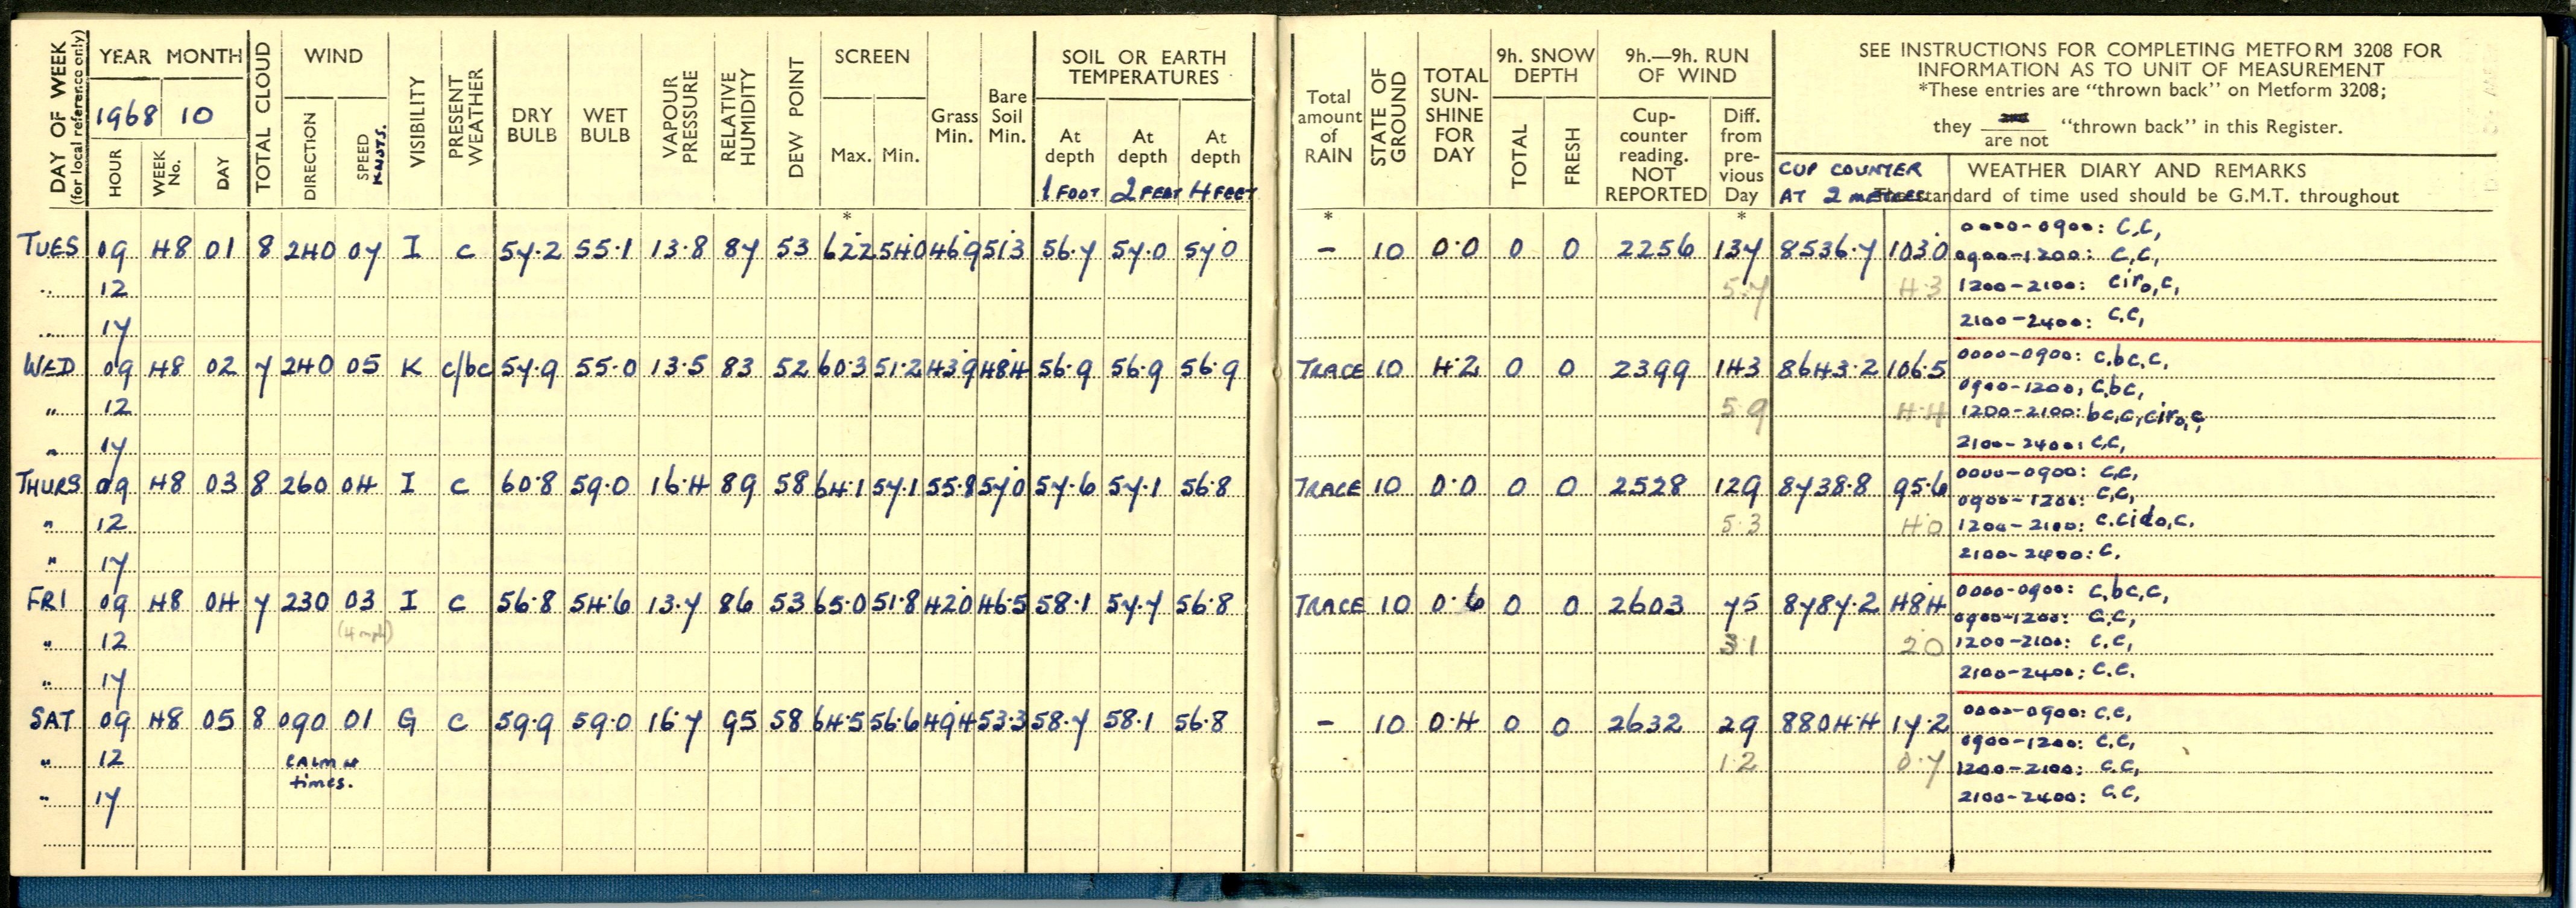 DAY OF WEEK (for local reference only)
YEAR MONTH
1968 10
HOUR WEEK No. DAY
TOTAL CLOUD
WIND
DIRECTION SPEED KNOTS.
VISIBILITY
PRESENT WEATHER
DRY BULB
WET BULB
VAPOUR PRESSURE
RELATIVE HUMIDITY
DEW POINT
SCREEN
Max. Min.
Grass Min.
Bare Soil Min.
SOIL OR EARTH TEMPERATURES
At depth 1 FOOT
At depth 2 FEET
At depth 4 FEET
Total amount of RAIN
STATE OF GROUND
TOTAL SUN-SHINE FOR DAY
9h. SNOW DEPTH
TOTAL FRESH
9h.—9h. RUN OF WIND
Cup-counter reading. NOT REPORTED
Diff. from pre-vious Day
SEE INSTRUCTIONS FOR COMPLETING METFORM 3208 FOR
INFORMATION AS TO UNIT OF MEASUREMENT
*These entries are "thrown back" on Metform 3208;
they are not "thrown back" in this Register.
CUP COUNTER
AT 2 METRES
WEATHER DIARY AND REMARKS
standard of time used should be G.M.T. throughout
* * *
TUES 09 48 01 8 240 07 I c 57.2 55.1 13.8 87 53 62.2 54.0 46.9 51.3 56.7 57.0 57.0 – 10 0.0 0 0 2256 137 8536.7 103.0
0000-0900: c,c,
0900-1200: c,c,
" 12 5.7 4.3
1200-2100: ciro,c,
" 17
2100-2400: c,c,
WED 09 48 02 7 240 05 K c/bc 57.9 55.0 13.5 83 52 60.3 51.2 43.9 48.4 56.9 56.9 56.9 TRACE 10 4.2 0 0 2399 143 8643.2 106.5
0000-0900: c,bc,c,
0900-1200: c,bc,
" 12 5.9 4.4
1200-2100: bc,c,ciro,c,
" 17
2100-2400: c,c,
THURS 09 48 03 8 260 04 I c 60.8 59.0 16.4 89 58 64.1 57.1 55.8 57.0 57.6 57.1 56.8 TRACE 10 0.0 0 0 2528 129 8738.8 95.6
0000-0900: c,c,
0900-1200: c,c,
" 12 5.3 4.0
1200-2100: c.cido,c.
" 17
2100-2400: c.
FRI 09 48 04 7 230 03 I c 56.8 54.6 13.7 86 53 65.0 51.8 42.0 46.5 58.1 57.7 56.8 TRACE 10 0.6 0 0 2603 75 8787.2 48.4
(4 mph)
0000-0900: c,bc,c,
0900-1200: c,c,
" 12 3.1 2.0
1200-2100: c.c,
" 17
2100-2400: c.c.
SAT 09 48 05 8 090 01 G c 59.9 59.0 16.7 95 58 64.5 56.6 49.4 53.3 58.7 58.1 56.8 – 10 0.4 0 0 2632 29 8804.4 17.2
0000-0900: c.c,
0900-1200: c.c,
" 12 CALM at times. 1.2 0.7
1200-2100: c.c,
" 17
2100-2400: c.c,